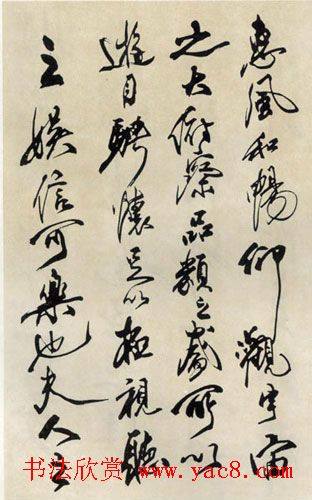 惠風和暢仰觀宇宙
之大俯察品類之盛所以
遊目騁懷足以極視聽
之娛信可樂也夫人之
书法欣赏 www.yac8.com